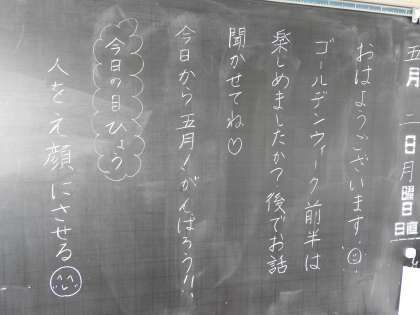 五月二日月曜日
日直
おはようございます。
ゴールデンウィーク前半は
楽しめましたか?後でお話
聞かせてね♡
今日から五月!がんばろう!!
今日の目ひょう
人をえ顔にさせる